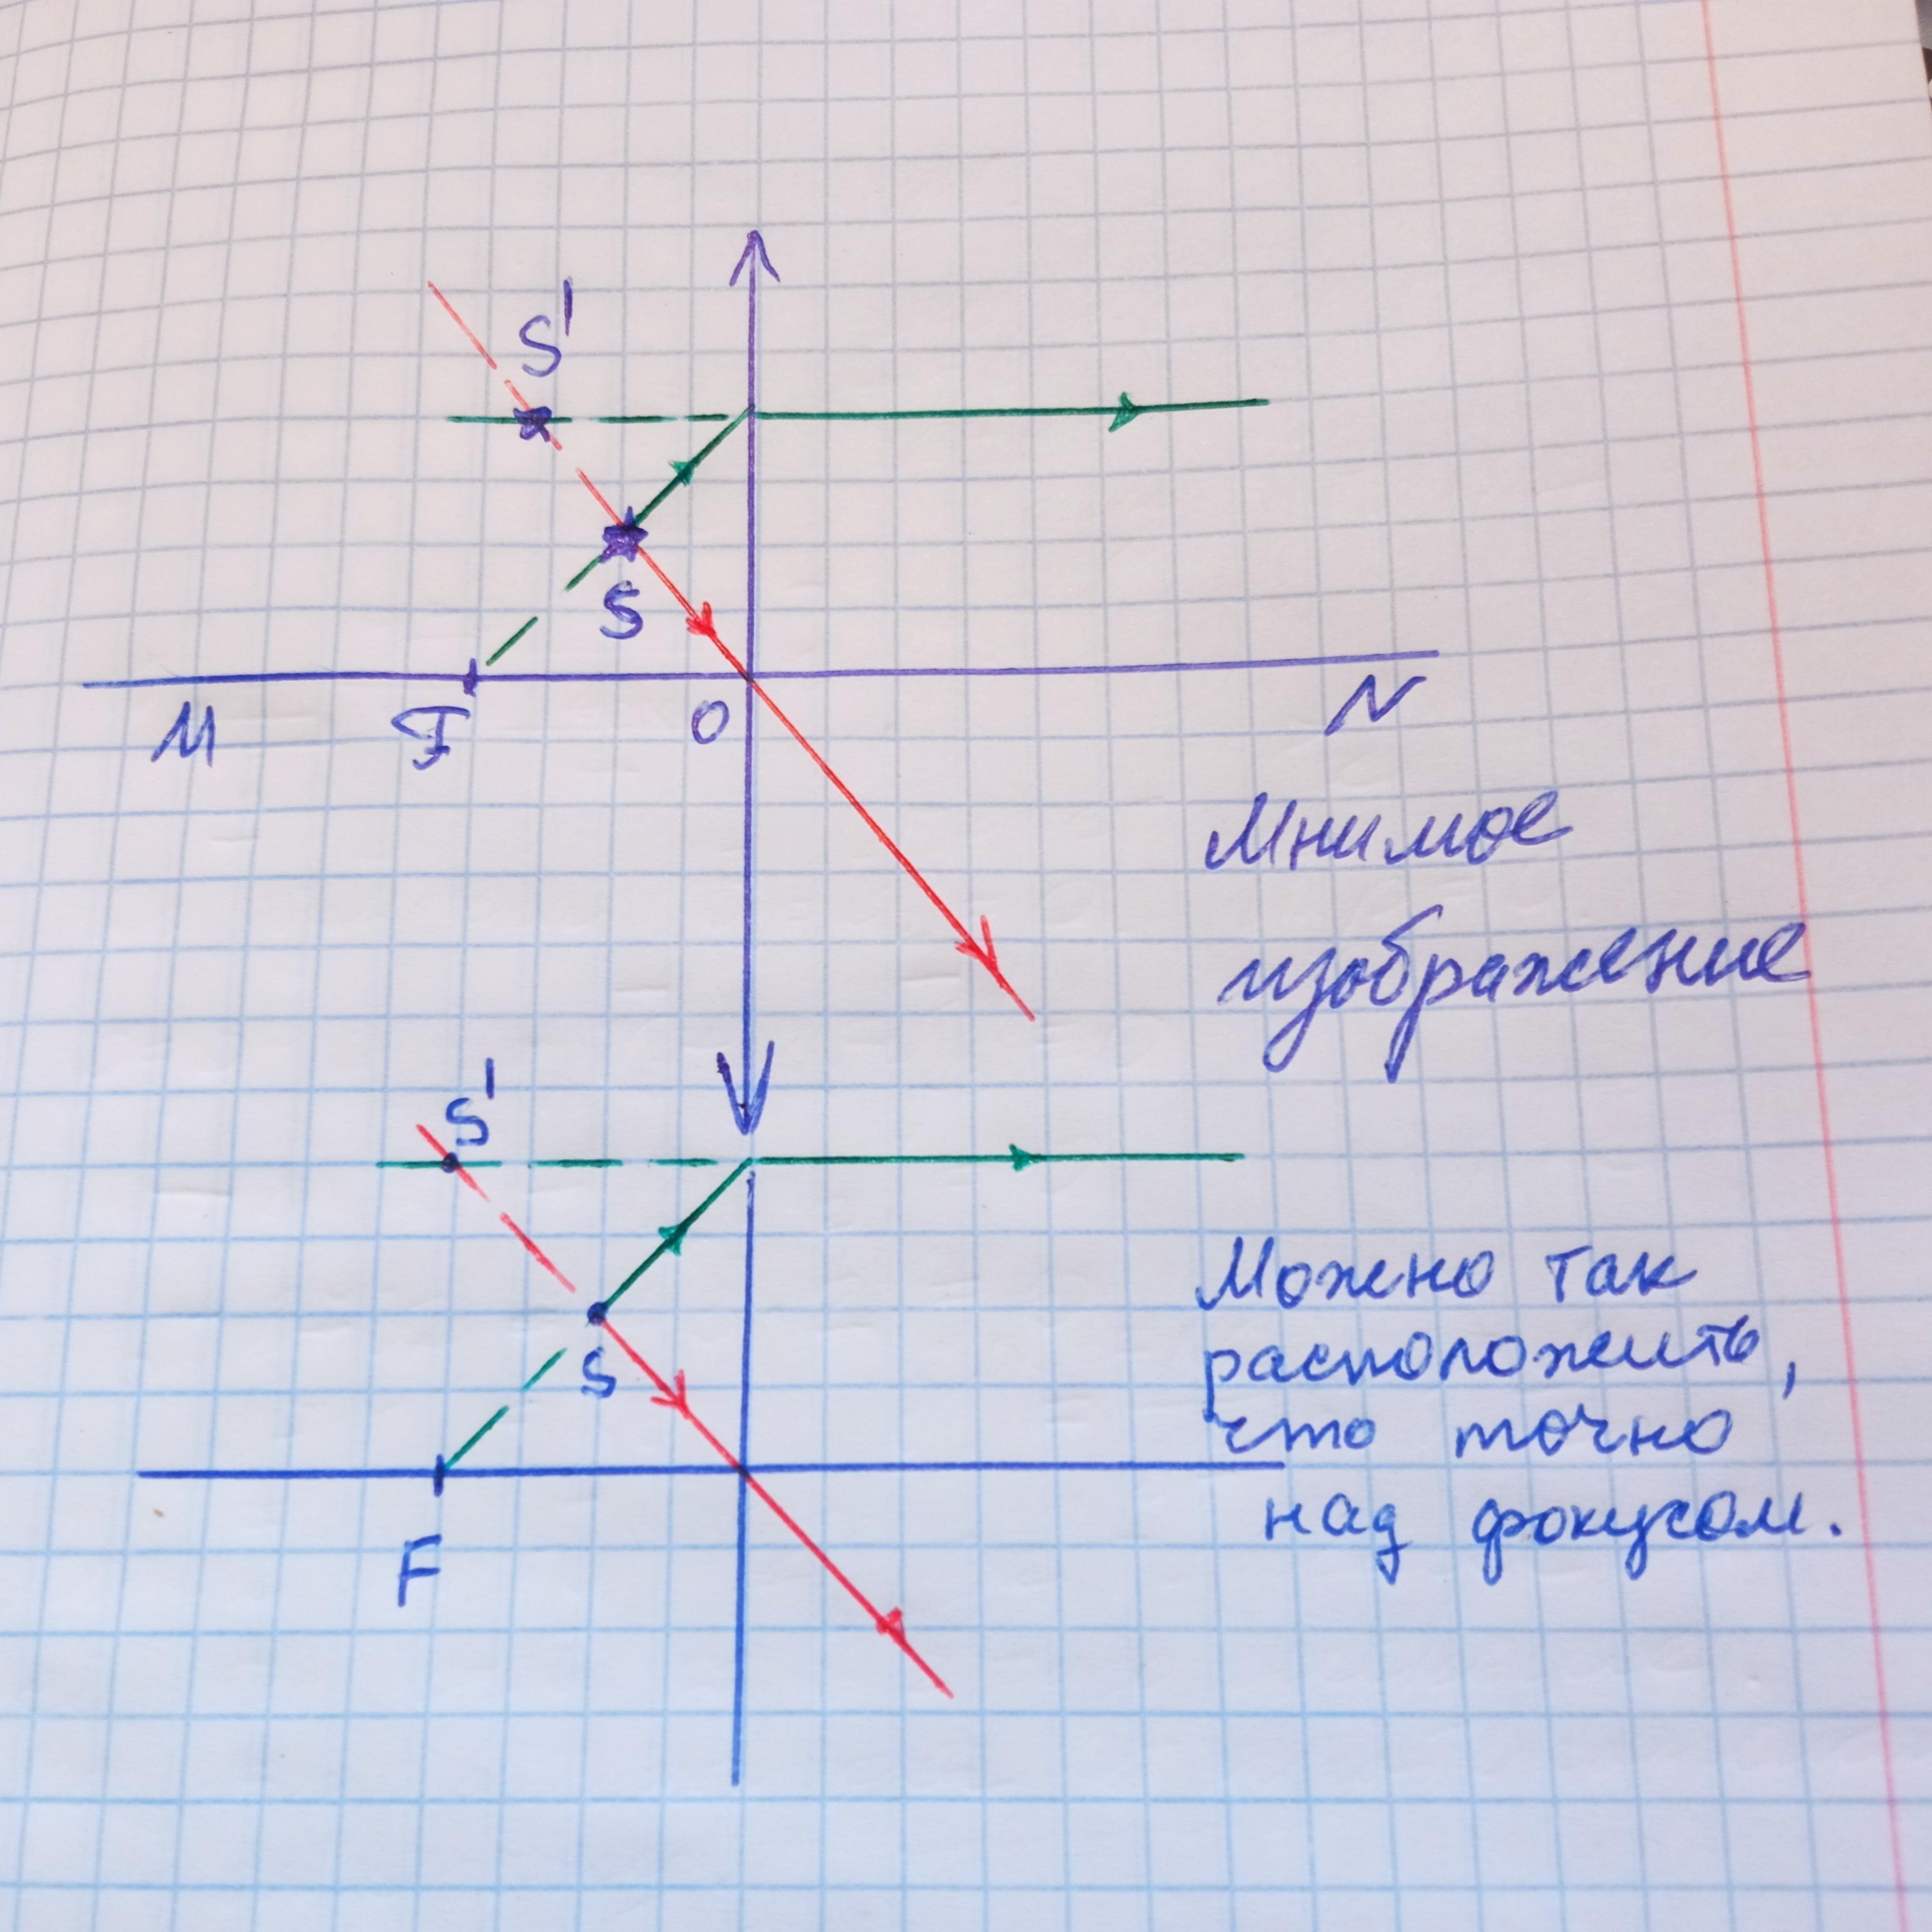 S'
S
M F O N
Мнимое
изображение
S'
S
F
Можно так
расположить,
что точно
над фокусом.